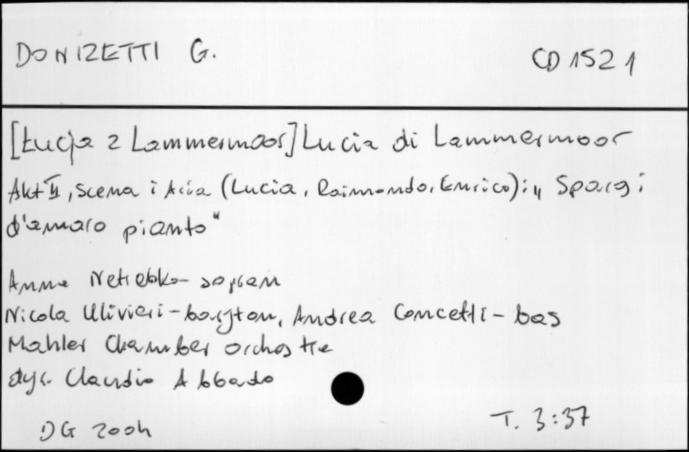 DONIZETTI G.
CD 1521
[Łucja z Lammermoor] Lucia di Lammermoor
Akt II, scena i Aria (Lucia, Raimondo, Enrico): „Spargi
d'amaro pianto"
Anna Netrebko - sopran
Nicola Ulivieri - baryton, Andrea Concetti - bas
Mahler Chamber Orchestre
dyr. Claudio Abbado
DG 2004
T. 3:37